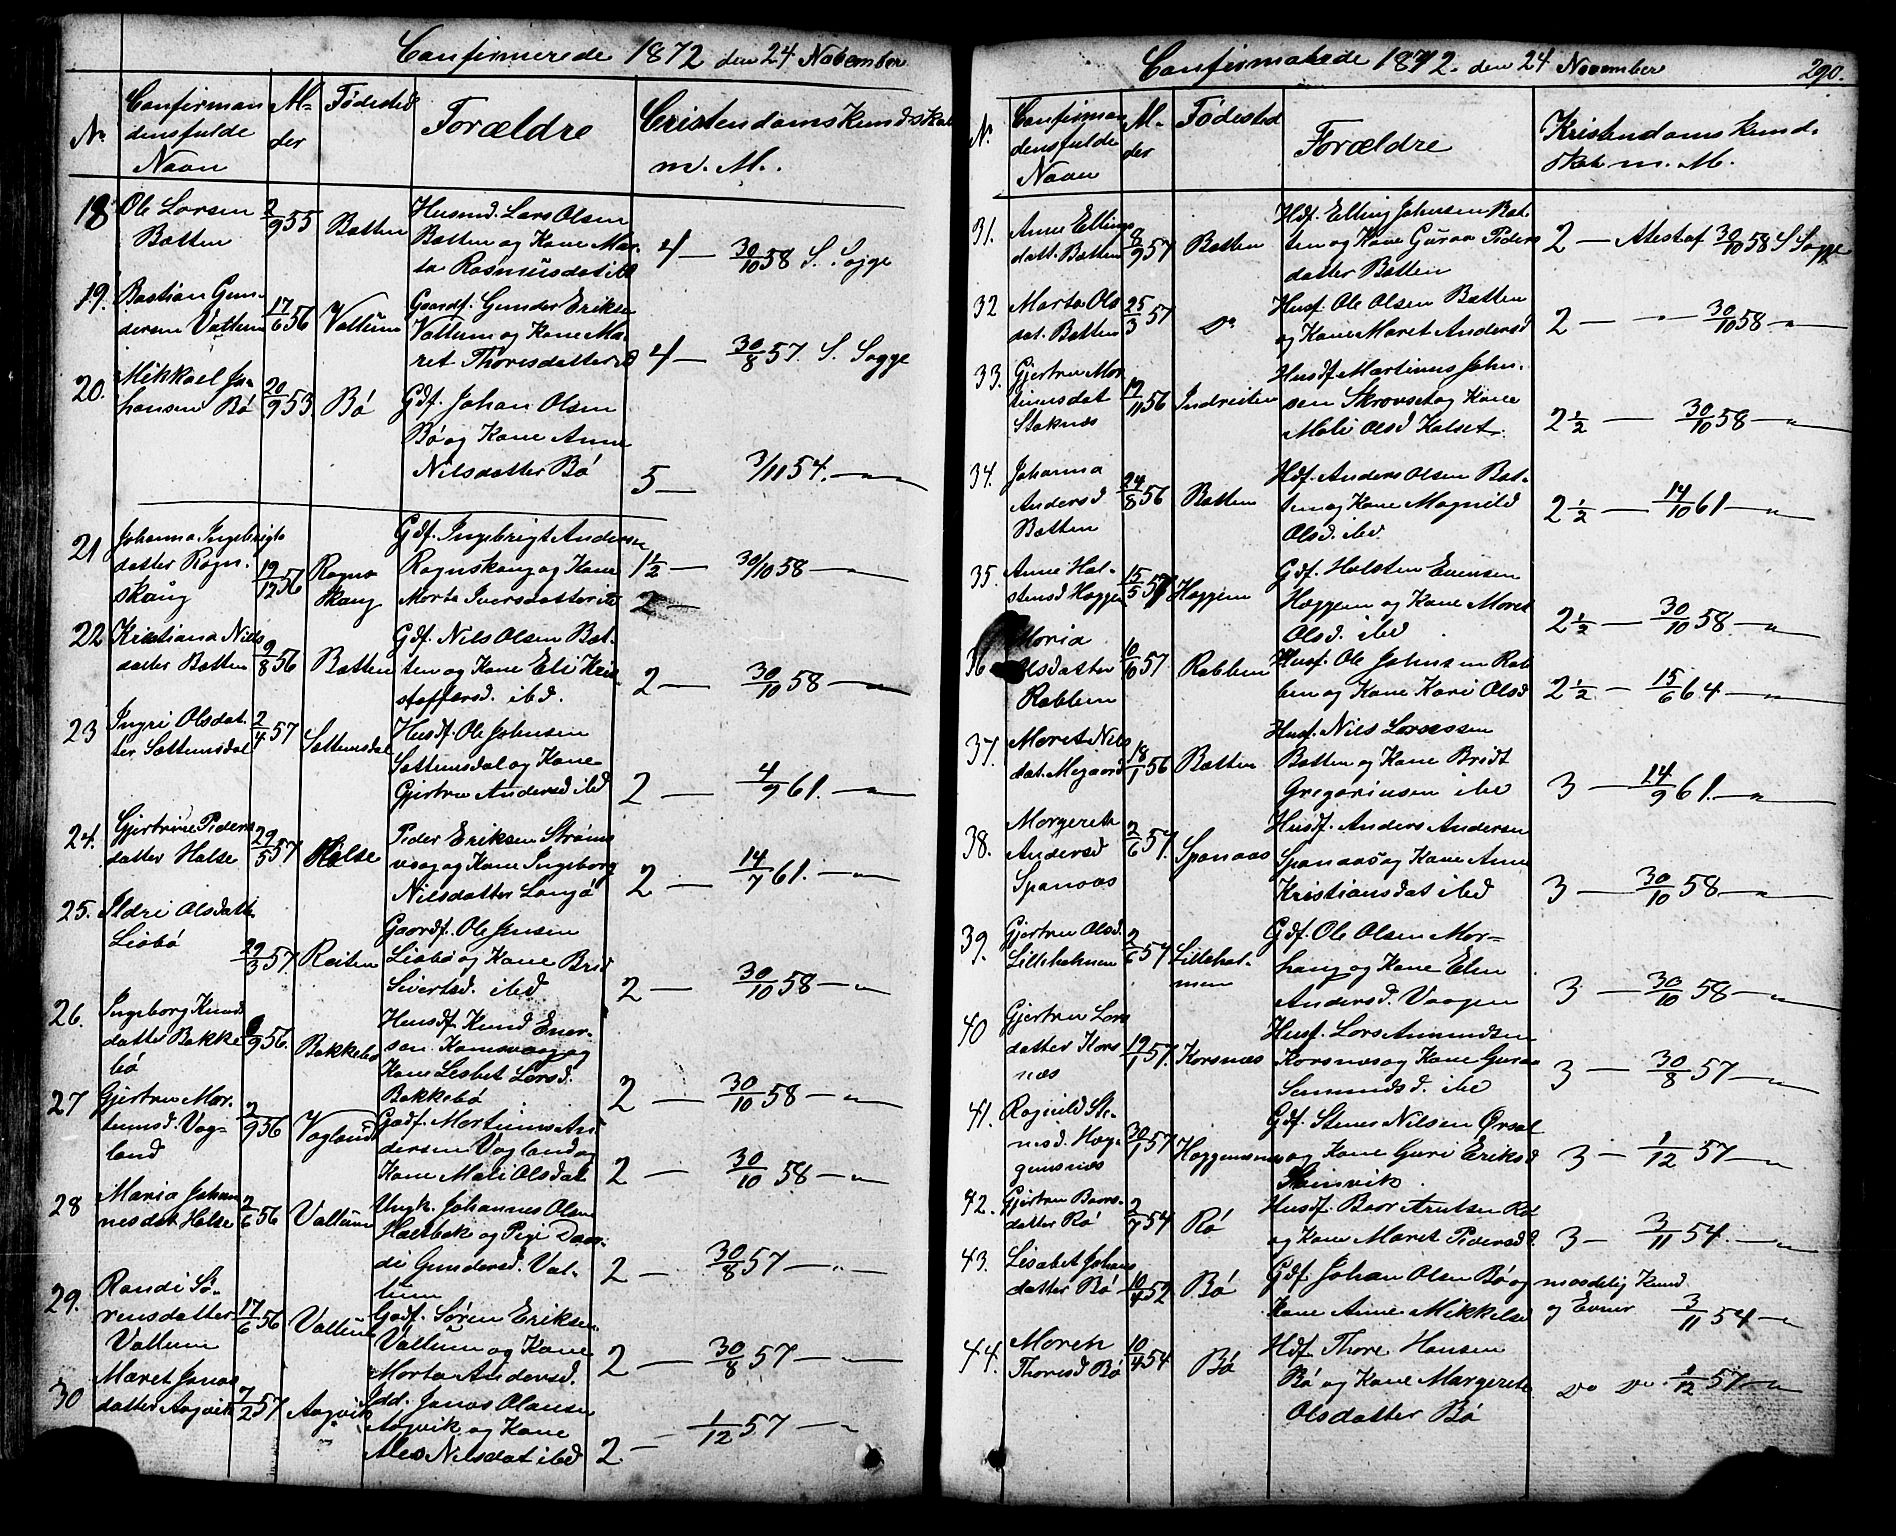 Confirmerede 1872 den 24 November
No
Confirman
densfulde
Navn
M.
der
Fødested
Forældre
Cristendomskundskab
m. M.
18 Ole Larsen
Botten
2/9 55
Batten
Husmd. Lars Olsen
Batten og Kone Mar-
ta Rasmusdat ibd
4 — 30/10 58 S. Sogge
19. Bastian Gun-
dersen Vattum
17/6 56
Vattum
Gaardf. Gunder Eriksen
Vattum og Kone Ma-
ret Thoresdatter
4 — 30/8 57. S. Sogge
20. Mikkael Jo-
hansen Bø
20/9 53
Bø
Gdf. Johan Olsen
Bø og Kone Anne
Nilsdatter Bø
5 — 3/11 54. — " —
21 Johanna Ingebrigts
datter Rogn-
skang
19/12 56
Rogn
skang
Gdf. Ingebrigt Andersen
Rognskang og Kone
Marta Iversdatter
1½ — 30/10 58 — " —
2 —
22 Kristiana Nils
datter Batten
9/8 56
Batten
Gdf. Nils Olsen Bat-
ten og Kone Eli Kri-
stoffersd. ibd.
2 — 30/10 58 — " —
23 Ingri Olsdat-
ter Sættemsdal
2/4 57
Sættemsdal
Husf. Ole Johnsen
Sættemsdal og Kone
Gjertru Andersd ibd
2 — 4/9 61. — " —
24. Gjertrine Peders
datter Halse
29/5 57
Halse
Peder Eriksen Strøms-
vaag og Kone Ingeborg
Nilsdatter Langø
2 — 14/7 61. — " —
25. Ildri Olsdatt
Liabø
29/3 57
Reiten
Gaardf. Ole Jensen
Liabø og Kone Brit
Sivertsd. ibd
2 — 30/10 58 — " —
26. Ingeborg Knud
datter Bakke
bø
9/9 56.
Bakkebø
Husdf. Knud Ener-
sen Kamsvaag og
Kone Lesbet Larsd.
Bakkebø
2 — 30/10 58 — " —
27 Gjertru Mar-
tinusd. Vag-
land
2/9 56
Vagland
Gadf. Martinus An
dersen Vagland og
Kone Mali Olsdat
2 — 30/10 58 — " —
28 Maria Johan
nesdat Halse
2/6 56
Vattum
Ungk. Johannes Olsen
Holtbak og Pige Dor-
di Gundersd. Vat-
tum
2 — 30/8 57 — " —
29. Randi Sø-
rensdatter
Vattum
17/6 56
Vattum
Gadf. Søren Eriksen
Vattum og Kone
Marta Andersd.
2 — 30/8 57 — " —
30 Maret Jonas
datter Aagvik
7/2 57
Aagvik
Jdd. Jonas Olausen
Aagvik og Kone
Ales Nilsdat ibd
2 — 1/12 57 — " —
Confirmerede 1872. den 24 November
290.
N.
Confirman
densfulde
Navn
M.
der
Fødested
Forældre
Kristendomskund-
skab m. M.
31. Anne Ellings
datt. Batten
8/9 57
Batten
Hdf. Elling Johnsen Bat-
ten og Kone Guraa Peders
datter Batten
2 — Attest af 30/10 58 S Sogge
32 Marta Ols
dat. Batten
25/3 57
Do
Husf. Ole Olsen Batten
og Kone Maret Andersd
2 — " — 30/10 58 — "
33. Gjertru Mar
tinusdat
Stoknæs
19/11 56
Indreiten
Husdf. Martinus John-
sen Skrovset og Kone
Mali Olsd Kalset.
2½ — 30/10 58 — "
34. Johanna
Andersd
Batten
24/8 56
Batten
Hdf. Anders Olsen Bat-
ten og Kone Magnild
Olsd. ibd
2½ — 14/10 61 — "
35. Anne Hal-
stensd Haggem
15/5 57
Haggem
Gdf. Halsten Evensen
Haggem og Kone Maret
Olsd. ibd
2½ — 30/10 58. — "
36 Maria
Olsdatter
Rabben
6/6 57
Rabben
Husf. Ole Johnsen Rab
ben og Kone Kari Olsd
2½ — 15/6 64 — "
37. Maret Nils
dat. Megaard
18/1 56
Batten
Husf. Nils Larssen
Batten og Kone Bridt
Gregoriusen ibd
3 — 14/9 61. — "
38. Margereth
Andersd
Spanaas
2/6 57.
Spanaas
Husdf. Anders Andersen
Spanaas og Kone Anne
Kristiansdat ibd
3 — 30/10 58 — "
39. Gjertru Olsd.
Lilleholmen
2/6 57
Lillehol-
men
Gdf. Ole Olsen Mor-
haug og Kone Elen
Andersd. Vaagen
3 — 30/10 58 — "
40 Gjertru Lars
datter Kors
næs
19/1 57.
Korsnæs
Husf. Lars Amundsen
Korsnæs og Kone Guraa
Semundsd. ibd
3 — 30/8 57 — "
41. Ragnild Ste-
nesd. Hag-
gemsnæs
30/1 57
Haggemsnæs
Gdf. Stener Nilsen Ørsal
og Kone Guri Eriksd
Steinvik.
3 — 1/12 57 — "
42. Gjertru Baars-
datter Rø
2/7 54
Rø
Husdf. Baar Arntsen Rø
og Kone Maret Pedersd.
3 — 3/11 54. — "
43. Lisabet Johans
datter Bø
10/4 52
Bø
Gdf. Johan Olsen Bø og
Kone Anne Mikkelsd
maadelig Kund
og Evner 3/11 54 — "
44. Mareth
Thoresd Bø
10/4 54
Bø
Hdf. Thore Hansen
Bø og Kone Margerete
Olsdatter Bø
Do Do. 1/12 57. — "